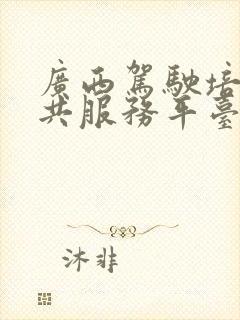 廣西駕駛培
共服務平臺
沐非